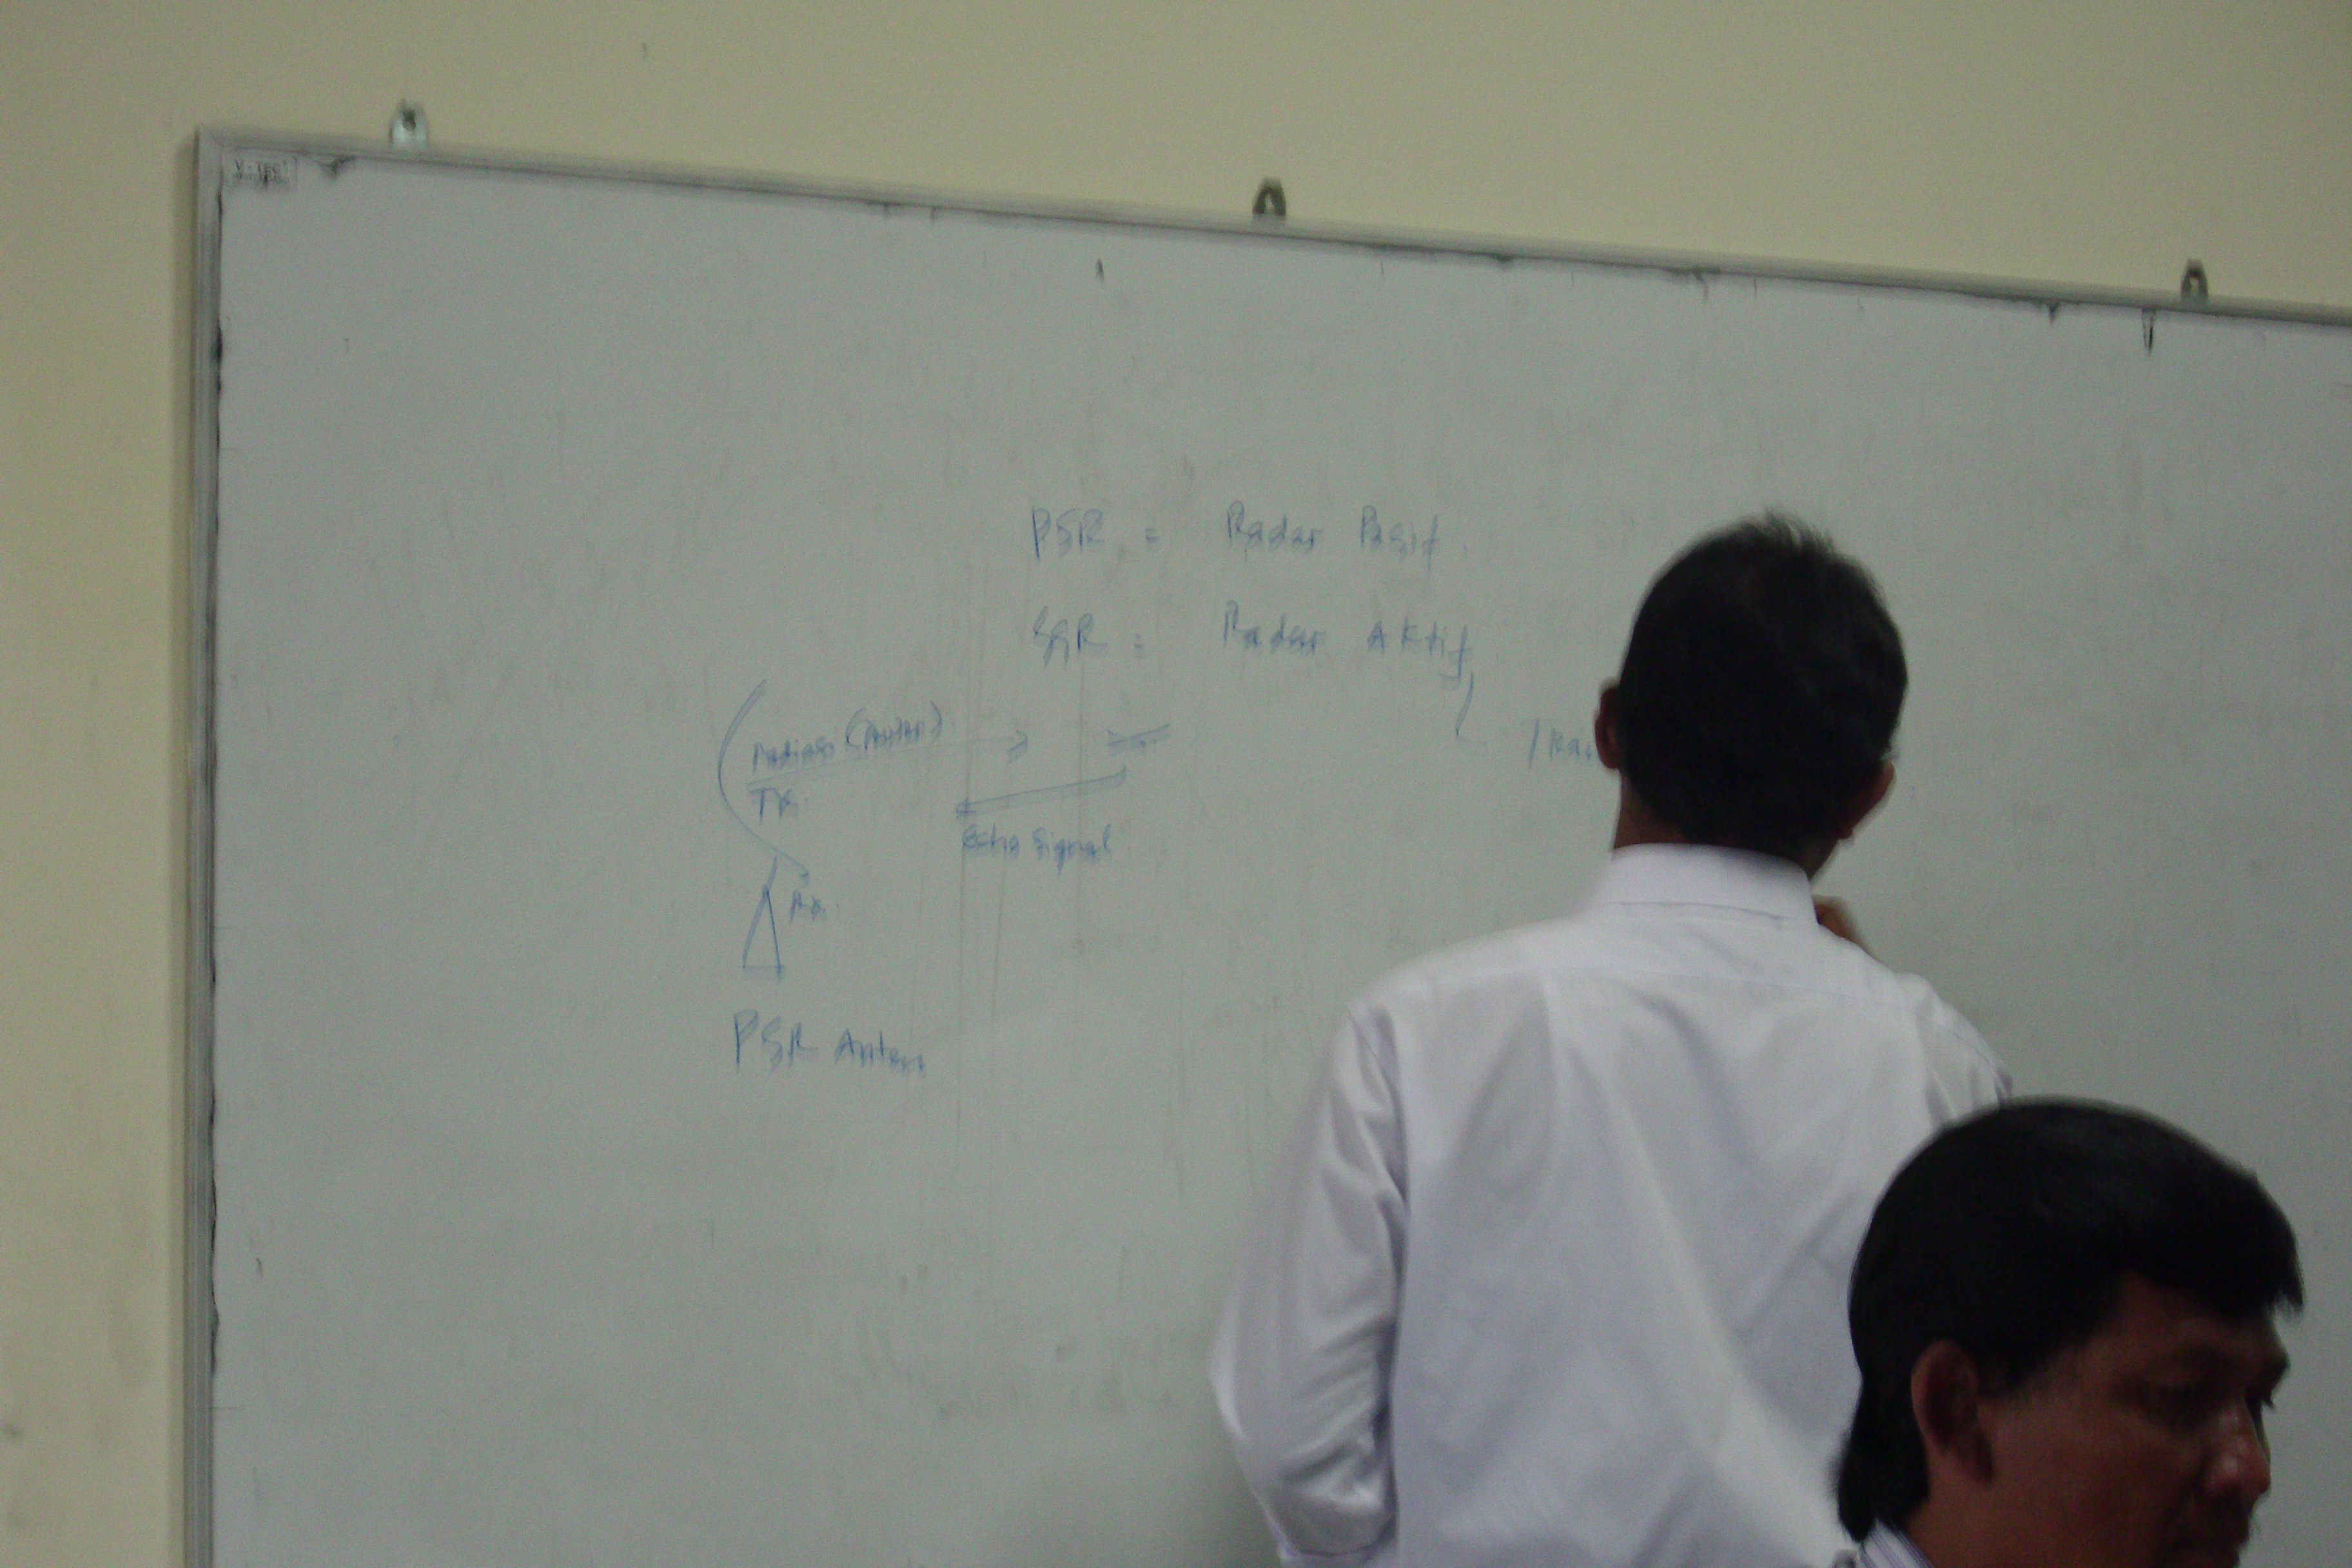 PSR = Radar Pasif.
SSR = Radar Aktif
Radiasi
TX.
Echo Signal
RX.
PSR Anten